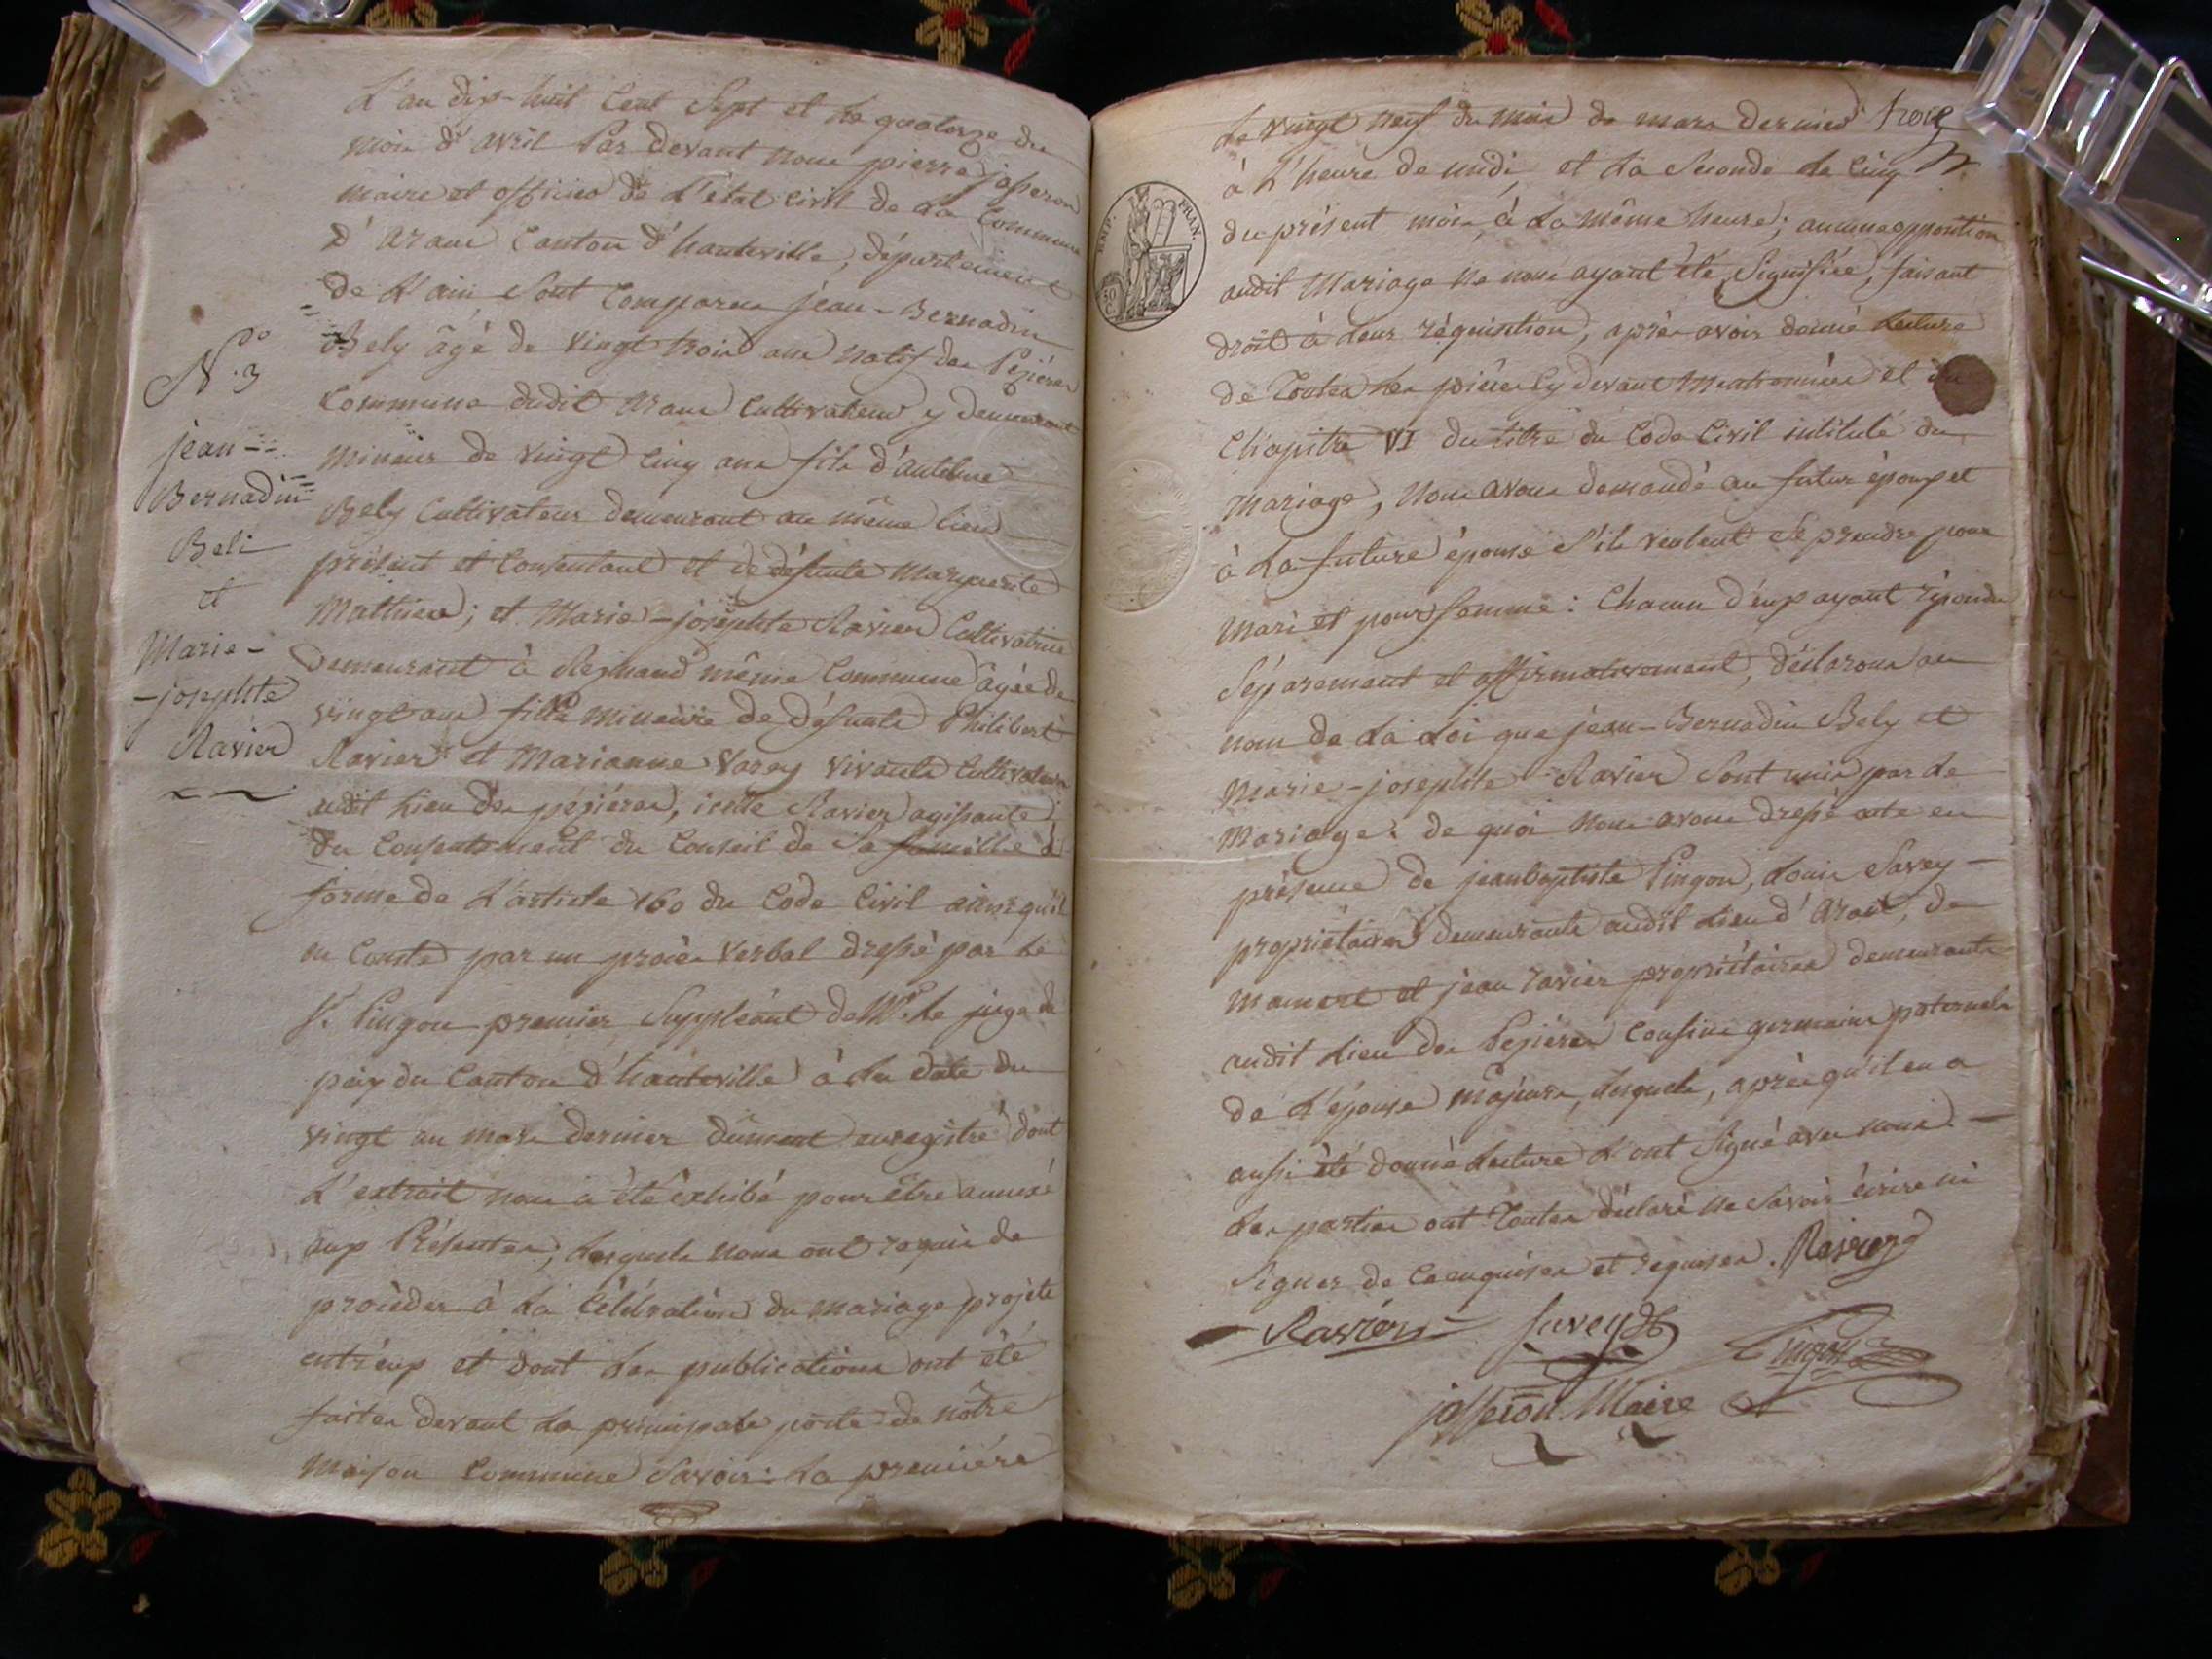 L'an dix-huit Cent Sept et le quatorze du
mois d'avril Par devant nous pierre josseron
maire et officier de L'état Civil de la Commune
d'aranc Canton d'hauteville, département
de L'ain Sont Comparus jean-Bernadin
Bely âgé de vingt trois ans natif des Pézières
Commune dudit aranc Cultivateur y demeurant
mineur de vingt Cinq ans fils d'antelme
Bely Cultivateur demeurant au même Lieu
présent et Consentant et de défunte Marguerite
Mathieu; et Marie-josephte Ravier Cultivatrice
Demeurant à Regnaud même Commune âgée de
vingt ans fille mineure de défunts Philibert
Ravier et Marianne Varey vivants Cultivateurs
audit Lieu des pézières, icelle Ravier agissante
du Consentement du Conseil de Sa famille à
forme de L'article 160 du Code Civil ainsi qu'il
en Conste par un procès verbal dressé par le
Sr. Pingon premier Suppléant de Mr. le juge de
paix du Canton d'hauteville à la date du
vingt un mars dernier dûment enregistré dont
L'extrait nous a été exhibé pour être annexé
aux Présentes; lesquels nous ont requis de
procéder à la Célébration du mariage projeté
entr'eux et dont les publications ont été
faites devant la principale porte de nôtre
maison Commune Savoir: la première
N.o 3
jean-
Bernadin
Beli
et
Marie-
-josephte
Ravier
trois
le vingt neuf du mois de mars dernier
à L'heure de midi, et la Seconde le Cinq
du présent mois à la même heure; aucune opposition
audit Mariage ne nous ayant été Signifiée, faisant
droit à leur réquisition, après avoir donné Lecture
de Toutes les pièces Cy devant Mentionnées et du
Chapitre VI du titre du Code Civil intitulé du
mariage, nous avons demandé au futur époux et
à la future épouse s'ils veulent se prendre pour
mari et pour femme: Chacun d'eux ayant répondu
Séparement et affirmativement, déclarons au
nom de la Loi que jean-Bernadin Bely et
marie-josephte Ravier Sont unis par le
Mariage. de quoi nous avons dressé acte en
présence de jean baptiste Pingon, Louis Savey
propriétaires demeurants audit Lieu d'aranc, de
mamert et jean ravier propriétaires demeurants
audit Lieu des Pezières Cousins germains paternels
de L'épouse majeurs, lesquels, après qu'il en a
aussi été donné Lecture L'ont Signé avec nous.
Les parties ont Toutes déclaré ne Savoir écrire ni
Signer de Ce enquises et requises. Ravier
Ravier Savey Pingon
josseron Maire
EMP. FRAN.
50
C.